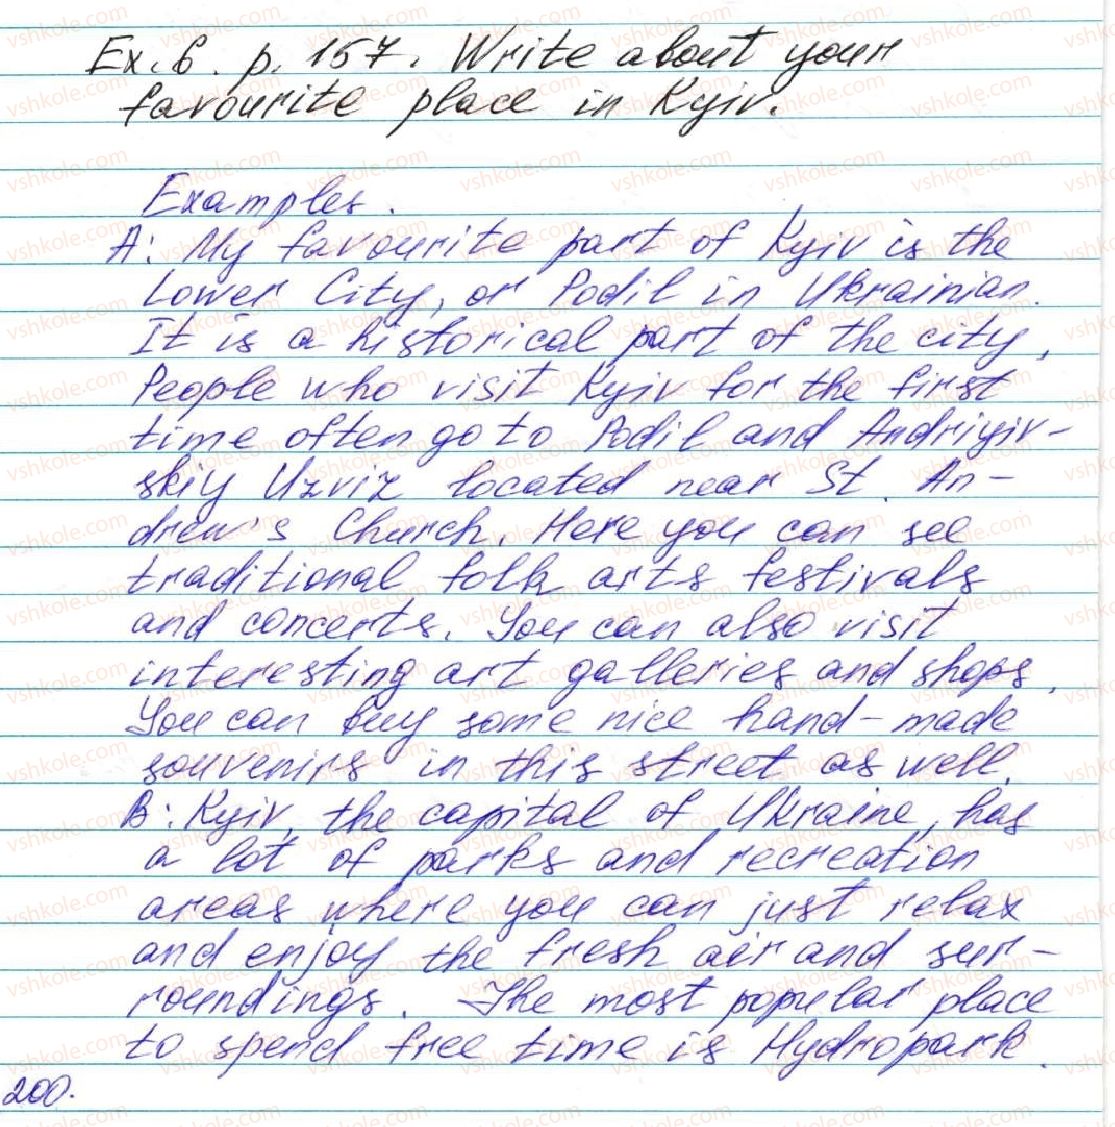 Ex. 6. p. 157. Write about your
favourite place in Kyiv.
Examples.
A: My favourite part of Kyiv is the
Lower City, or Podil in Ukrainian.
It is a historical part of the city.
People who visit Kyiv for the first
time often go to Podil and Andriyiv-
skiy Uzviz located near St. An-
drew's Church. Here you can see
traditional folk arts festivals
and concerts. You can also visit
interesting art galleries and shops.
You can buy some nice hand-made
souvenirs in this street as well.
B: Kyiv, the capital of Ukraine, has
a lot of parks and recreation
areas where you can just relax
and enjoy the fresh air and sur-
roundings. The most popular place
to spend free time is Hydropark.
200.
vshkole.com